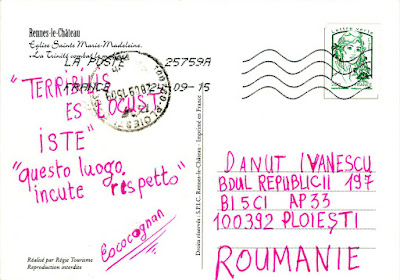 Rennes-le-Château
Eglise Sainte Marie-Madeleine.
La Trinité
LA POSTE 25759A
FRANCE 24-09-15
"TERRIBILIS
ES LOCUST
ISTE"
"questo luogo
incute rispetto"
Cococagnan
Réalisé par Régie Tourisme
Reproduction interdite
Droits réservés - S.P.I.C. Rennes-le-Château - Imprimé en France
DANUT IVANESCU
BDUL REPUBLICII 197
BL5CI AP33
100392 PLOIEȘTI
ROUMANIE